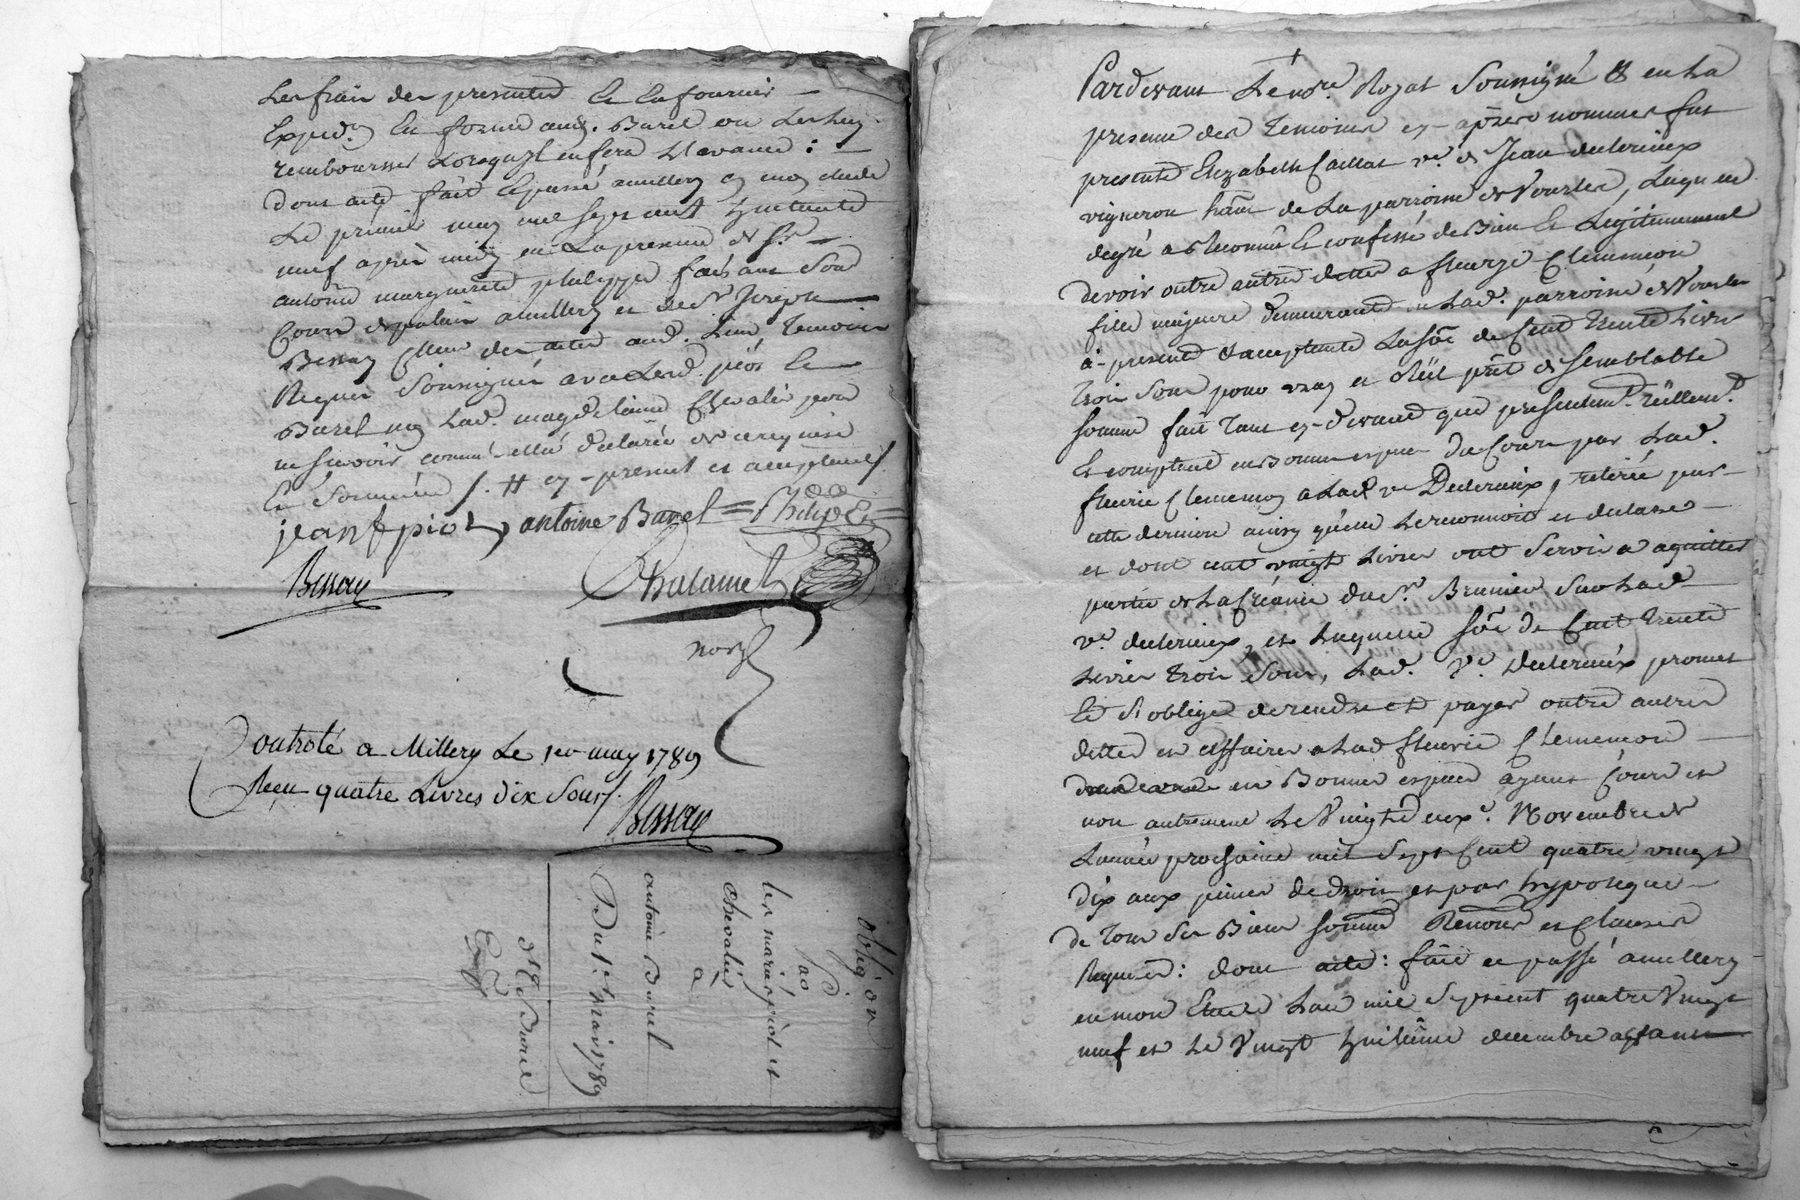 Les frais des presentes Et La fournir
Expedon En forme aud. Burel ou Les luy
rembourser Lorsquil en fera L'avance :
Dont acte fait Et passé a millery En mon etude
Le premier may mil sept cent huitante
neuf après midy en La presence de Sr
antoine marguerite philippe faisant Son
Cours de pratique a millery et de Sr Joseph
Bessay Controlleur des actes aud. Lieu Temoins
Requis Soussignés avec Led. piot Et
Burel non Lad. magdelaine Chevalié pour
ne Sçavoir comme elle a declarée de ce enquise
Et Sommée /. # cy-present et acceptant /.
jean f piot antoine Burel = Philippe =
Bessay Chalamel
nore
Controlé a Millery Le 1er may 1789
Reçu quatre Livres dix Sous /.
Bessay
obligon
par
les mariés piot et
chevalié
à
antoine Burel
Du 1er mai 1789
Pardevant Le nore. Royal Soussigné & en La
presence des temoins cy-après nommés fut
presente Elizabeth Caillat ve. de Jean declerieux
vigneron hãnt de La parroisse de Vourles, Laquelle
degré a Reconnu Et confessé de Bien Et Legitimement
devoir outre autre dette a fleurie Clemençon
fille majeure demeurante en Lad. parroisse de Vourles
à-presente & acceptante La sõe de Cent Trente Livres
trois Sous pour vray et réel prêt de semblable
somme fait Tant cy-devant que presentemt. réellemt.
Et comptant en Bonnes espèces du Cours par Lad.
fleurie Clemençon a Lad ve Declerieux, retirée par
cette derniere ainsy qu'elle Le reconnoit et declare
et dont cent vingt Livres ont Servis a aquitter
partie de La Créance du Sr. Brunier Sur Lad
ve. decleriux, et Laquelle sõe de Cent Trente
Livres trois Sous, Lad. Ve. Decleriéux promet
Et S'oblige de rendre et payer outre autres
dettes et affaires a Lad fleurie Clémençon
en Bonnes espèces ayant Cours et
non autrement Le Vingtdeuxe. Novembre de
L'année prochaine mil Sept Cent quatre vingt
Dix aux peines de droit et par hypoteque
de Tous Ses Biens Soumis Renons et Clauses
Requises : dont acte : fait et passé a millery
en mon Etude L'an mil Septcent quatre Vingt
neuf et Le Vingt huitième decembre avant